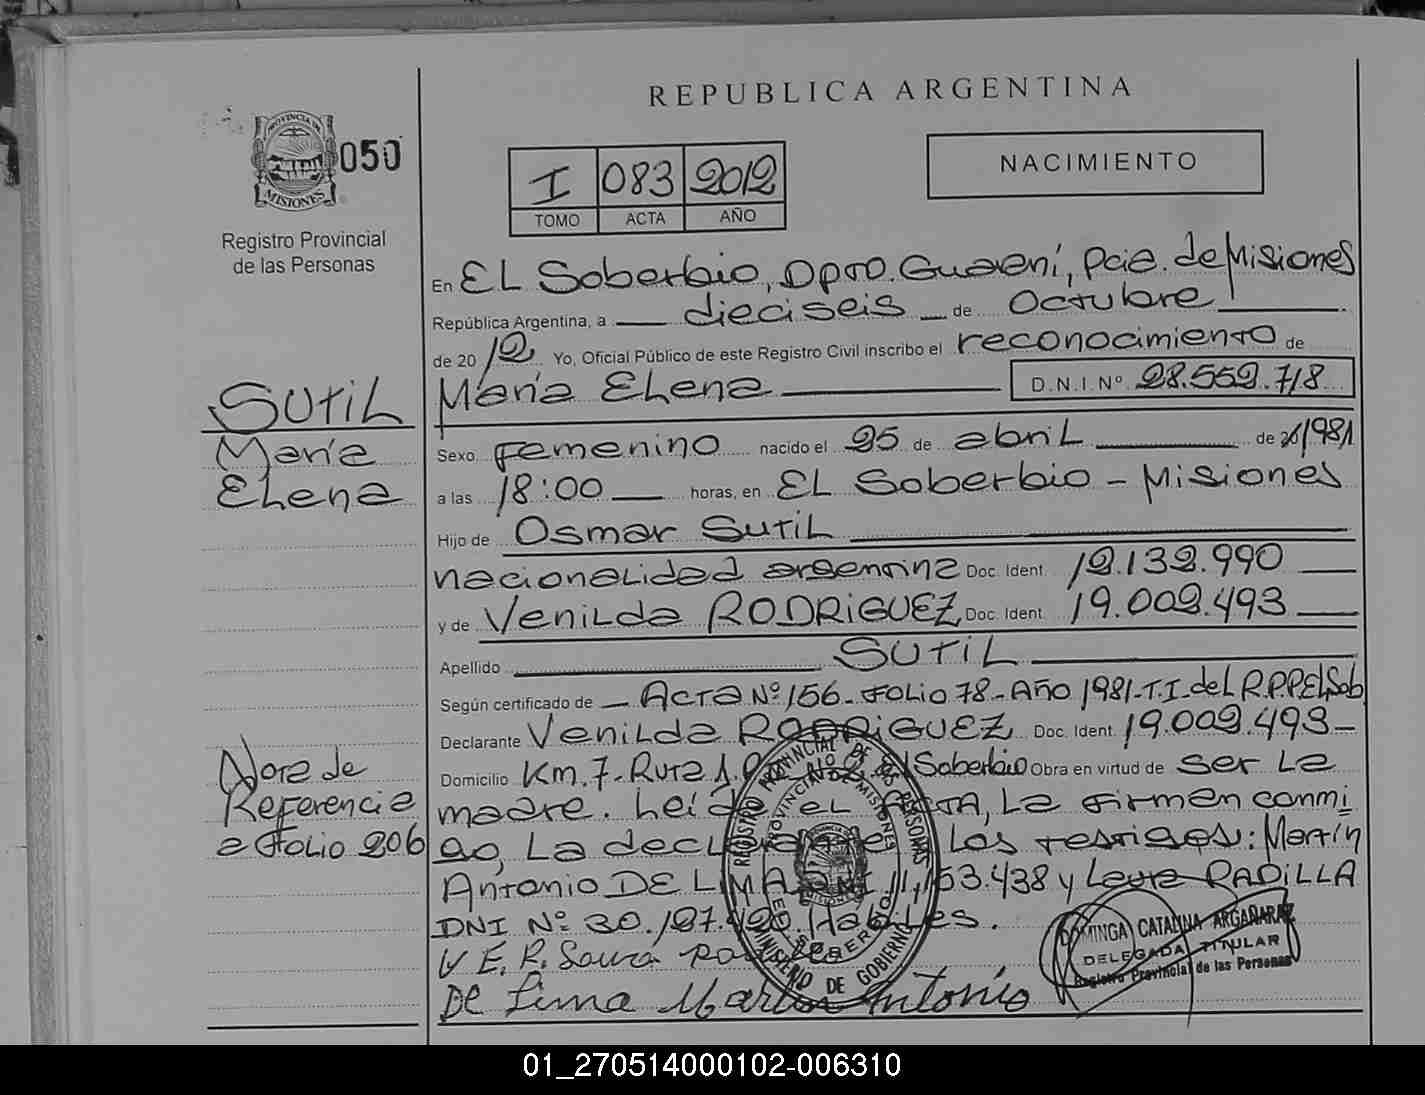 REPUBLICA ARGENTINA
PROVINCIA DE
MISIONES
050
Registro Provincial
de las Personas
I 083 2012
TOMO ACTA AÑO
NACIMIENTO
En EL Soberbio, Dpto. Guaraní, Pcia. de Misiones
República Argentina, a dieciseis de Octubre
de 2012 Yo, Oficial Público de este Registro Civil inscribo el reconocimiento de
María Elena D.N.I. Nº 28.552.718
Sexo Femenino nacido el 25 de abril de 1981
a las 18:00 horas, en EL Soberbio - Misiones
Hijo de Osmar Sutil
nacionalidad argentina Doc. Ident. 12.132.990
y de Venilda RODRIGUEZ Doc. Ident. 19.002.493
Apellido SUTIL
Según certificado de Acta Nº 156 - Folio 78 - Año 1981 - T.I. del R.P.P. El Sob
Declarante Venilda RODRIGUEZ Doc. Ident. 19.002.493
Domicilio Km. 7 - Ruta Soberbio Obra en virtud de ser La
madre. Leída eL Acta, La firman conmi
go, La declarante Los testigos: Martín
Antonio DE LIMA DNI 11,153.438 y Laura PADILLA
DNI Nº 30.187. Habiles.
V E. R. Saura
De Lima Martin Antonio
SUTIL
María
Elena
Nota de
Referencia
a Folio 206
REGISTRO PROVINCIAL DE LAS PERSONAS
PROVINCIA DE MISIONES
EL SOBERBIO
MINISTERIO DE GOBIERNO
DOMINGA CATALINA ARGAÑARAZ
DELEGADA TITULAR
Registro Provincial de las Personas
01_270514000102-006310